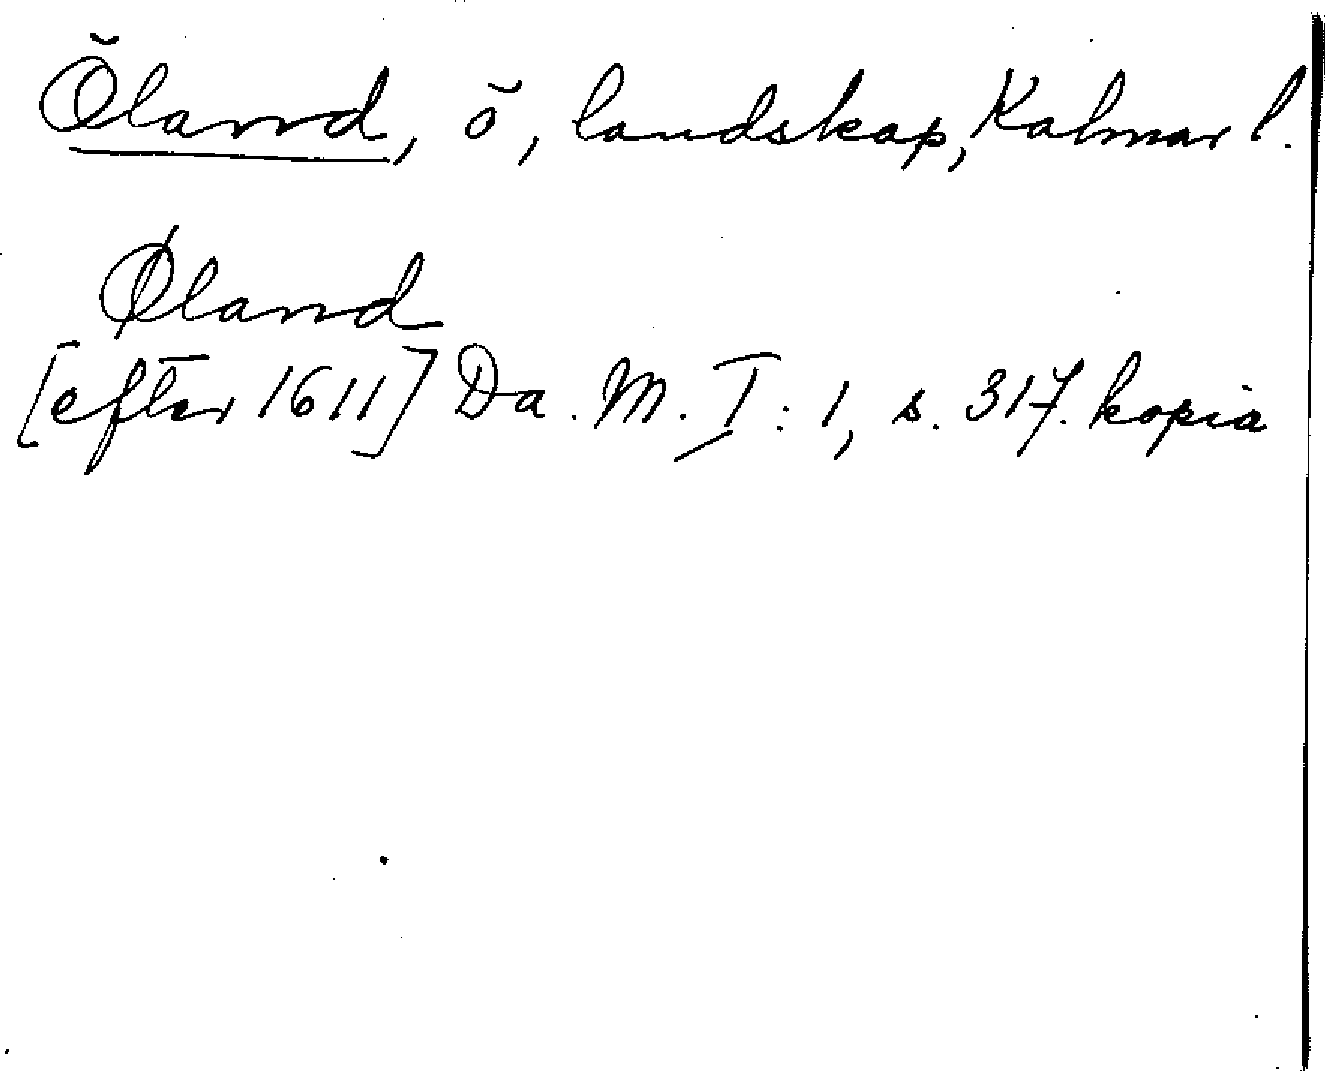 Öland, ö, landskap, Kalmar l.
Øland
[efter 1611] Da. M. I: 1, s. 317. kopia